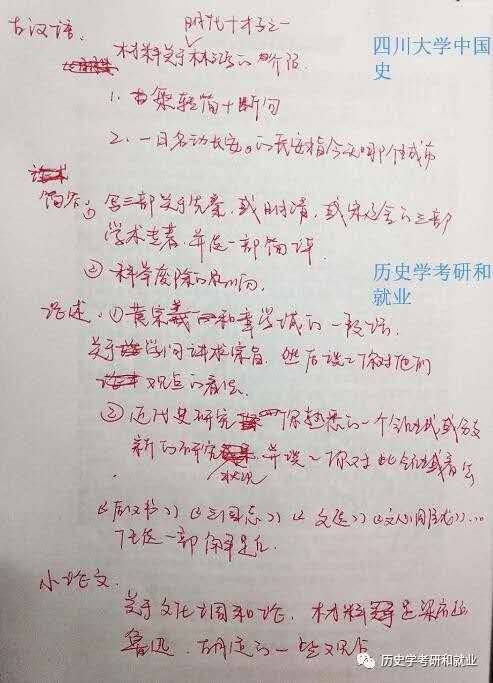 明代十才子之一
古汉语.
材料关于林鸿的介绍
四川大学中国史
1. 由繁轻简+断句
2. 一日名动长安。的长安指今天哪个城市
简答① 写三部关于先秦, 或明清, 或宋辽金的三部
学术专著 并选一部简评.
② 科举废除的原因.
历史学考研和就业
论述. ① 黄宗羲 和章学诚的一段话.
关于 学问讲求宗旨, 然后谈谈你对他们
观点的看法.
② 近代史研究 你熟悉的一个领域或分支
新的研究 状况 . 并谈~你对此领域看法
《后汉书》《三国志》《文选》《文心雕龙》...
任选一部
小论文.
关于文化调和论. 材料 是梁启超
鲁迅. 胡适的一些观点
历史学考研和就业